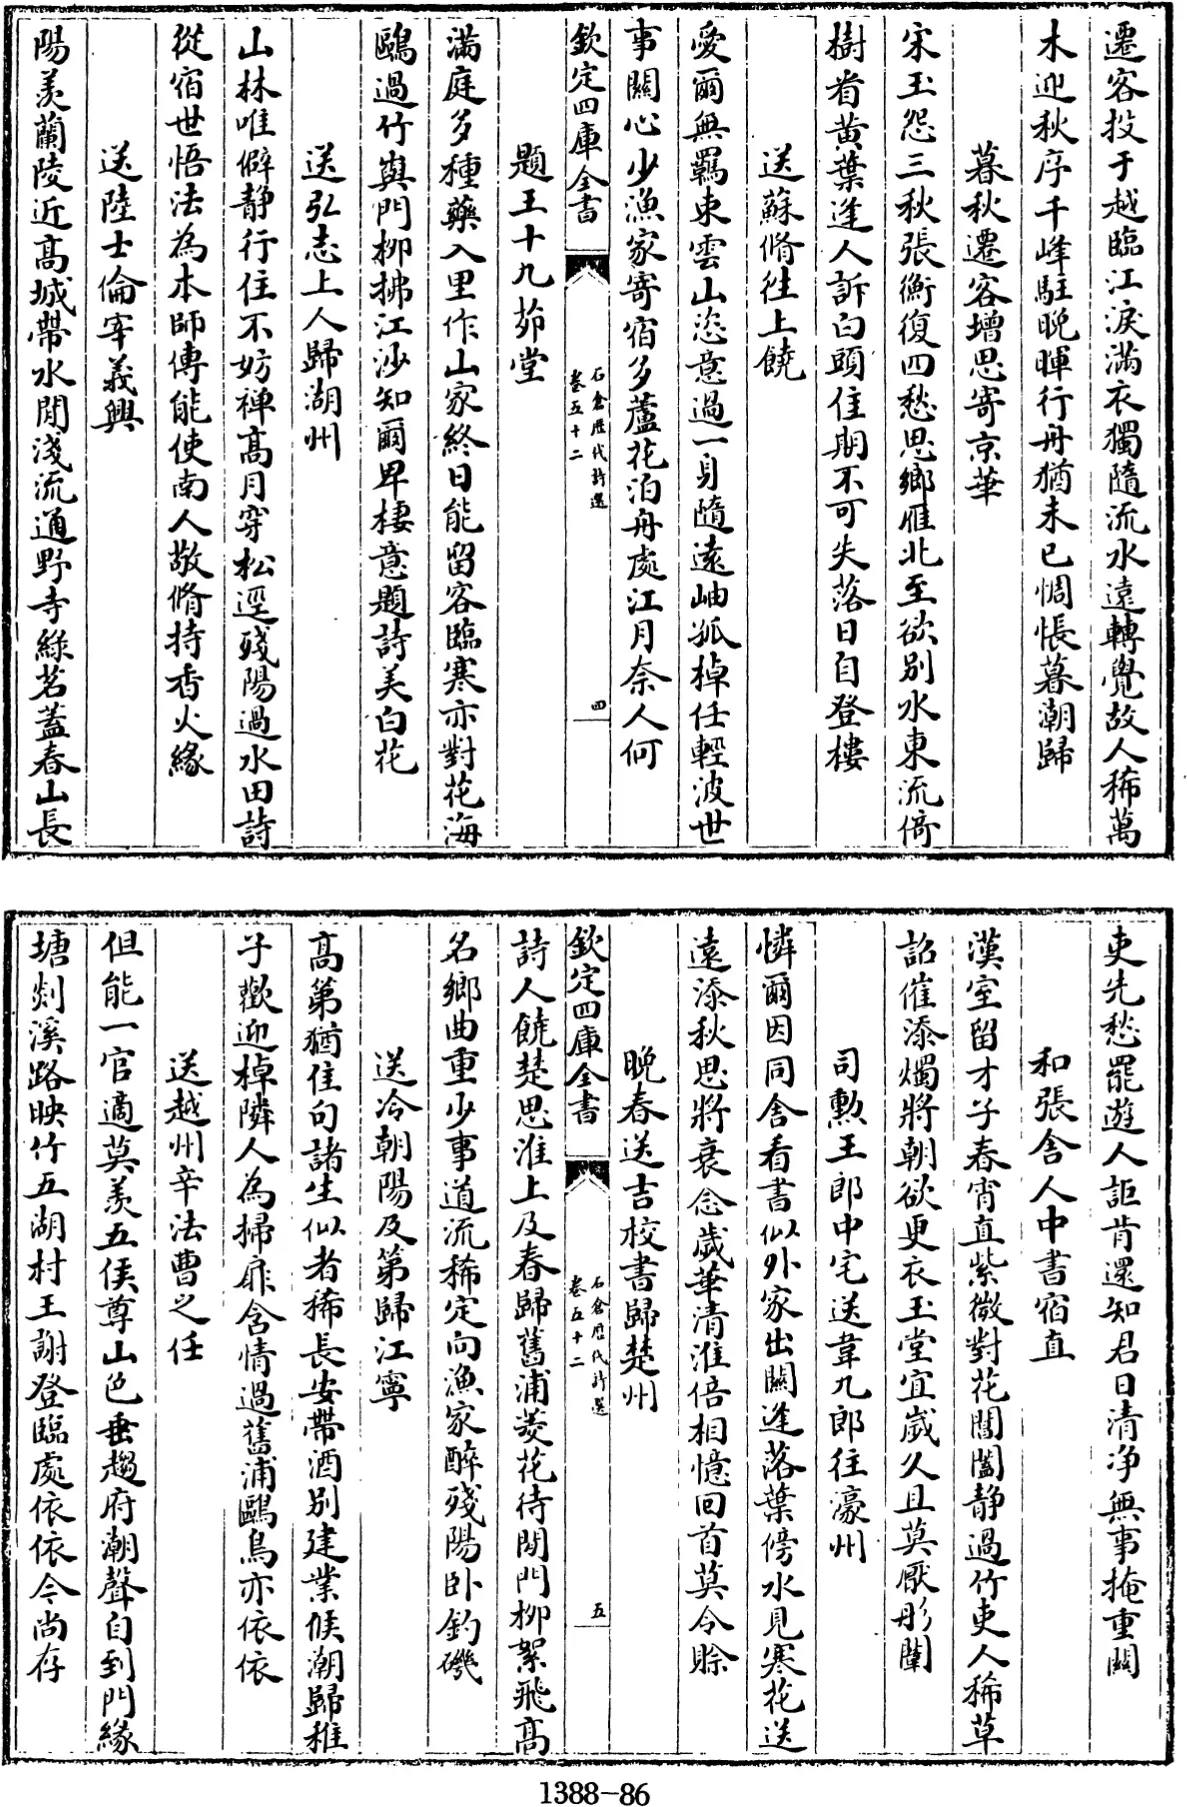 遷客投于越臨江淚滿衣獨隨流水遠轉覺故人稀萬
木迎秋序千峰駐晚暉行舟猶未已惆悵暮潮歸
暮秋遷客增思寄京華
宋玉怨三秋張衡復四愁思鄉雁北至欲别水東流倚
樹看黄葉逢人訴白頭佳期不可失落日自登樓
送蘇脩往上饒
愛爾無羈束雲山恣意過一身隨遠岫孤棹任輕波世
事關心少漁家寄宿多蘆花泊舟處江月奈人何
欽定四庫全書
石倉歷代詩選
卷五十二
四
題王十九茆堂
滿庭多種藥入里作山家終日能留客臨寒亦對花海
鷗過竹輿門柳拂江沙知爾卑棲意題詩美白花
送弘志上人歸湖州
山林唯僻静行住不妨禅高月穿松逕殘陽過水田詩
從宿世悟法為本師傳能使南人敬脩持香火緣
送陸士倫宰義興
陽羨蘭陵近高城帶水閒淺流通野寺綠茗蓋春山長
吏先愁罷遊人詎肯還知君日清净無事掩重關
和張舍人中書宿直
漢室留才子春宵直紫微對花閶闔静過竹吏人稀草
詔催添燭將朝欲更衣玉堂宜嵗久且莫厭彤闈
司勲王郎中宅送韋九郎往濠州
憐爾因同舍看書似外家出關逢落葉傍水見寒花送
遠添秋思將衰念嵗華清淮倍相憶回首莫令賒
晚春送吉校書歸楚州
欽定四庫全書
石倉歷代詩選
卷五十二
五
詩人饒楚思淮上及春歸舊浦菱花待閒門柳絮飛高
名鄉曲重少事道流稀定向漁家醉殘陽卧釣磯
送冷朝陽及第歸江寧
高第猶佳句諸生似者稀長安帶酒别建業候潮歸稚
子歡迎棹隣人為掃扉含情過舊浦鷗鳥亦依依
送越州辛法曹之任
但能一官適莫羨五侯尊山色垂趨府潮聲自到門緣
塘剡溪路映竹五湖村王謝登臨處依依今尚存
1388-86